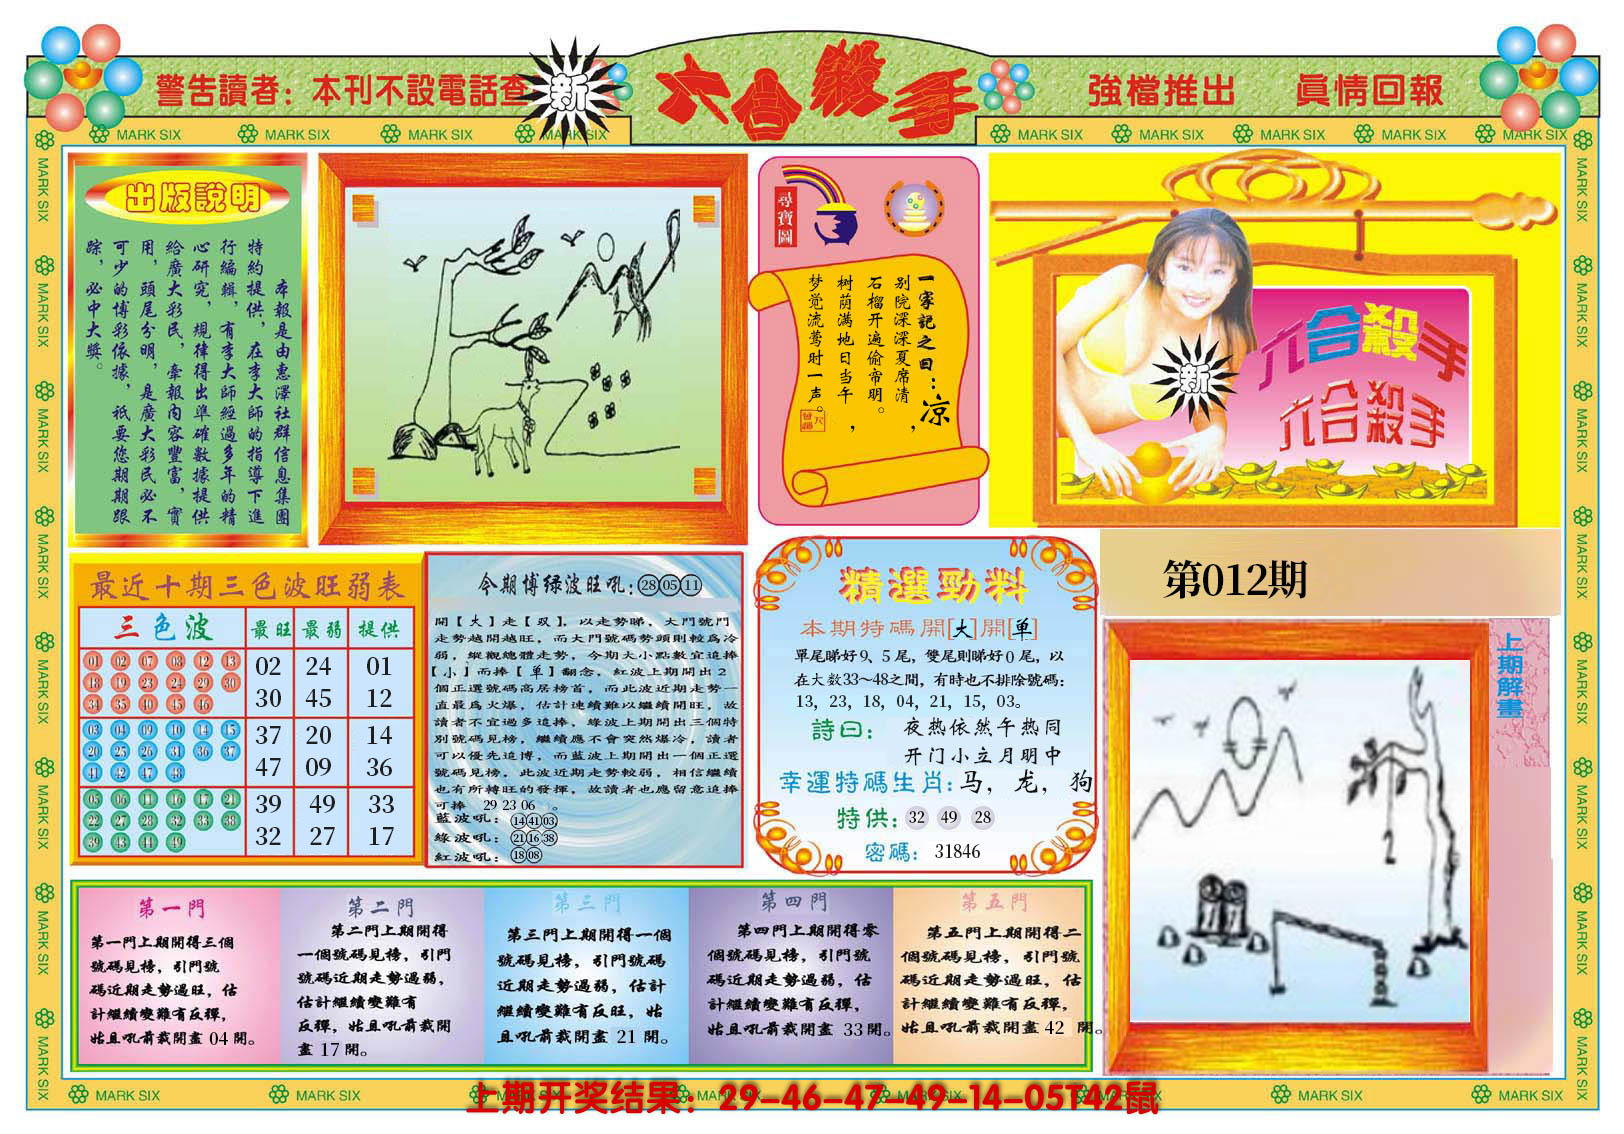 警告讀者：本刊不設電話查
新
六合殺手
強檔推出 眞情回報
MARK SIX
出版說明
本報是由惠澤社群信息集團
特約提供，在李大師的指導下進
行編輯，有李大師經過多年的精
心研究，規律得出準確數據提供
給廣大彩民，牽報內容豐富，實
用，頭尾分明，是廣大彩民必不
可少的博彩依據，祇要您期期跟
踪，必中大獎。
尋寶圖
一家記之曰：凉
别院深深夏席清，
石榴开遍偷帘明。
树荫满地日当午，
梦觉流莺时一声。
新
六合殺手
六合殺手
最近十期三色波旺弱表
三色波 最旺 最弱 提供
01 02 07 08 12 13
18 19 23 24 29 30
34 35 40 45 46
02 24 01
30 45 12
03 04 09 10 14 15
20 25 26 31 36 37
41 42 47 48
37 20 14
47 09 36
05 06 11 16 17 21
22 27 28 32 33 38
39 43 44 49
39 49 33
32 27 17
今期博绿波旺吼：28 05 11
開【大】走【双】，以走勢睇，大門號門
走勢越開越旺，而大門號碼勢頭則較爲冷
弱，縱觀總體走勢，今期大小點數宜追捧
【小】而捧【单】翻念，紅波上期開出2
個正選號碼高居榜首，而此波近期走勢一
直最爲火爆，估計連續難以繼續開旺，故
讀者不宜過多追捧，綠波上期開出三個特
别號碼見榜，繼續應不會突然爆冷，讀者
可以優先追博，而藍波上期開出一個正選
號碼見榜，此波近期走勢較弱，相信繼續
也有所轉旺的發揮，故讀者也應留意追捧
可捧 29 23 06 。
藍波吼：14 41 03
綠波吼：21 16 38
紅波吼：18 08
精選勁料
本期特碼開[大]開[单]
單尾睇好9、5尾，雙尾則睇好0尾，以
在大数33～48之間，有時也不排除號碼：
13，23，18，04，21，15，03。
詩曰： 夜热依然午热同
开门小立月明中
幸運特碼生肖：马，龙，狗
特供：32 49 28
密碼：31846
第012期
上期解畫
第一門
第一門上期開得三個
號碼見榜，引門號
碼近期走勢過旺，估
計繼續變難有反彈，
姑且吼前裁開畫 04 開。
第二門
第二門上期開得
一個號碼見榜，引門
號碼近期走勢過弱，
估計繼續變難有
反彈，姑且吼前裁開
畫 17 開。
第三門
第三門上期開得一個
號碼見榜，引門號碼
近期走勢過弱，估計
繼續變難有反旺，姑
且吼前裁開畫 21 開。
第四門
第四門上期開得零
個號碼見榜，引門號
碼近期走勢過弱，估
計繼續變難有反彈，
姑且吼前裁開畫 33 開。
第五門
第五門上期開得二
個號碼見榜，引門號
碼近期走勢過旺，估
計繼續變難有反彈，
姑且吼前裁開畫 42 開。
上期开奖结果：29-46-47-49-14-05T42鼠